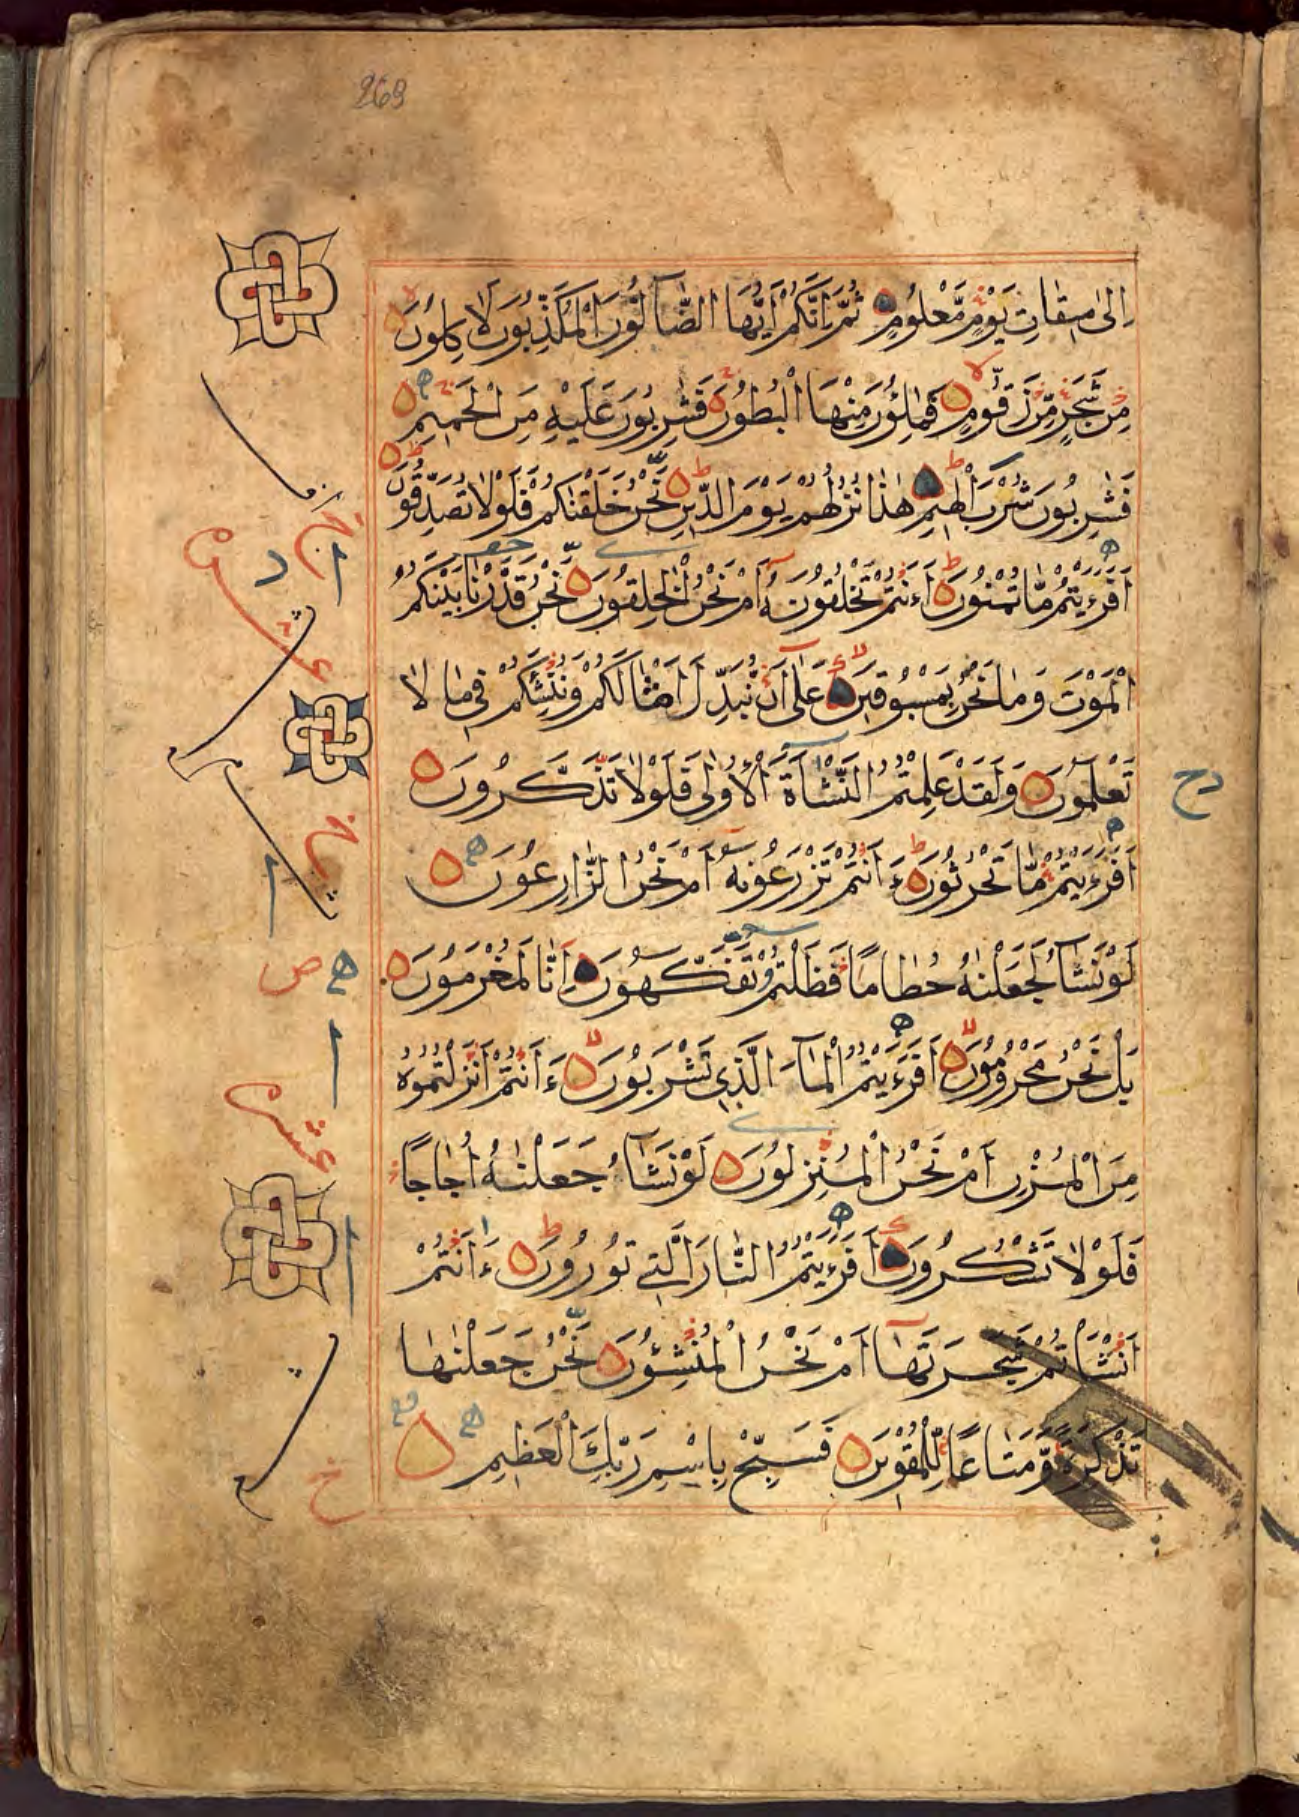 269
اِلىٰ مِيقَاتِ يَوْمٍ مَّعْلُومٍ ثُمَّ اِنَّكُمْ اَيُّهَا الضَّآلُّونَ الْمُكَذِّبُونَ لَاٰكِلُونَ
مِنْ شَجَرٍ مِّنْ زَقُّومٍ فَمٰلِـُٔونَ مِنْهَا الْبُطُونَ فَشٰرِبُونَ عَلَيْهِ مِنَ الْحَمِيمِ
فَشٰرِبُونَ شُرْبَ الْهِيمِ هٰذَا نُزُلُهُمْ يَوْمَ الدِّينِ نَحْنُ خَلَقْنٰكُمْ فَلَوْلَا تُصَدِّقُونَ
اَفَرَءَيْتُمْ مَّا تُمْنُونَ ءَاَنْتُمْ تَخْلُقُونَهُ اَمْ نَحْنُ الْخٰلِقُونَ نَحْنُ قَدَّرْنَا بَيْنَكُمُ
الْمَوْتَ وَمَا نَحْنُ بِمَسْبُوقِينَ عَلىٰ اَنْ نُّبَدِّلَ اَمْثَالَكُمْ وَنُنْشِئَكُمْ فِي مَا لَا
تَعْلَمُونَ وَلَقَدْ عَلِمْتُمُ النَّشْاَةَ الْاُولىٰ فَلَوْلَا تَذَكَّرُونَ
رح
اَفَرَءَيْتُمْ مَّا تَحْرُثُونَ ءَاَنْتُمْ تَزْرَعُونَهُ اَمْ نَحْنُ الزَّارِعُونَ
لَوْ نَشَآءُ لَجَعَلْنٰهُ حُطَامًا فَظَلْتُمْ تَفَكَّهُونَ اِنَّا لَمُغْرَمُونَ
بَلْ نَحْنُ مَحْرُومُونَ اَفَرَءَيْتُمُ الْمَآءَ الَّذِي تَشْرَبُونَ ءَاَنْتُمْ اَنْزَلْتُمُوهُ
مِنَ الْمُزْنِ اَمْ نَحْنُ الْمُنْزِلُونَ لَوْ نَشَآءُ جَعَلْنٰهُ اُجَاجًا
فَلَوْلَا تَشْكُرُونَ اَفَرَءَيْتُمُ النَّارَ الَّتِي تُورُونَ ءَاَنْتُمْ
اَنْشَاْتُمْ شَجَرَتَهَآ اَمْ نَحْنُ الْمُنْشِئُونَ نَحْنُ جَعَلْنٰهَا
تَذْكِرَةً وَّمَتَاعًا لِّلْمُقْوِينَ فَسَبِّحْ بِاسْمِ رَبِّكَ الْعَظِيمِ
عشر
عشر